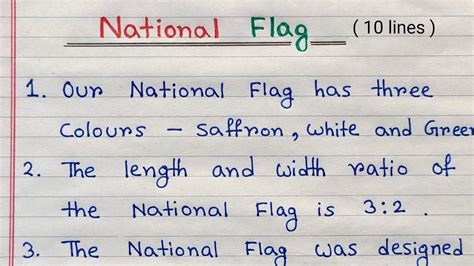 National Flag (10 lines)
1. Our National Flag has three
Colours – Saffron, White and Green
2. The length and width ratio of
the National Flag is 3:2.
3. The National Flag was designed